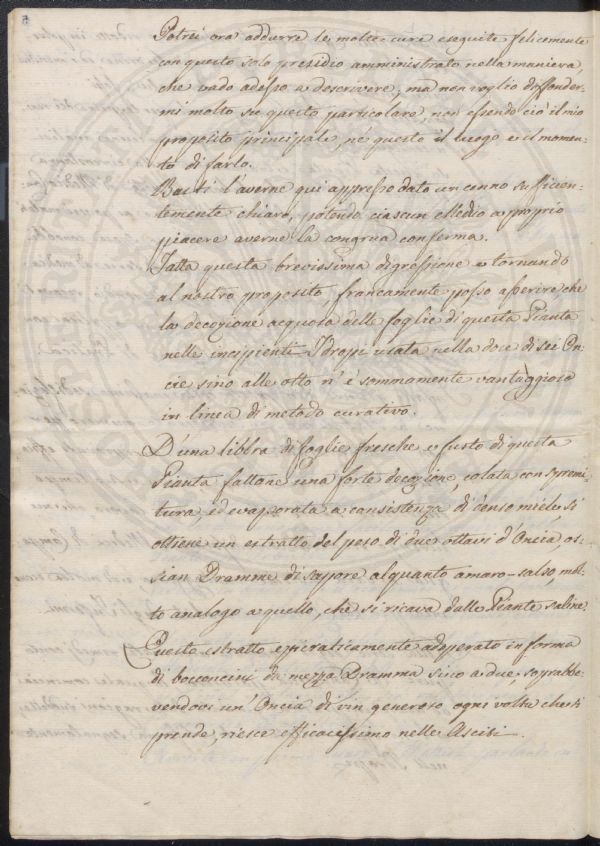 Potrei ora addurre le molte cure eseguite felicemente
con questo solo presidio amministrato nella maniera,
che vado adesso a descrivere, ma non voglio diffonder-
mi molto su questo particolare, non essendo ciò il mio
proposito principale, né questo il luogo e il momen-
to di farlo.
Basti l'averne qui appresso dato un cenno sufficien-
temente chiaro, potendo ciascun Medico a proprio
piacere averne la congrua conferma.
Fatta questa brevissima digressione e tornando
al nostro proposito, francamente posso asserire, che
la decozione acquosa delle foglie di questa Pianta
nelle incipienti Idropi usata nella dose di sei On-
cie sino alle otto n'è sommamente vantaggiosa
in linea di metodo curativo.
D'una libbra di foglie fresche e fusto di questa
Pianta fattane una forte decozione, colata con spremi-
tura, ed evaporata a consistenza di denso miele, si
ottiene un estratto del peso di due ottavi d'Oncia, os-
sian Dramme di sapore alquanto amaro-salso, mol-
to analogo a quello, che si ricava dalle Piante saline
Questo estratto epicraticamente adoperato in forma
di bocconcini da mezza Dramma sino a due, soprabbe-
vendovi un'Oncia di vin generoso ogni volta che si
prende, riesce efficacissimo nelle Asciti.